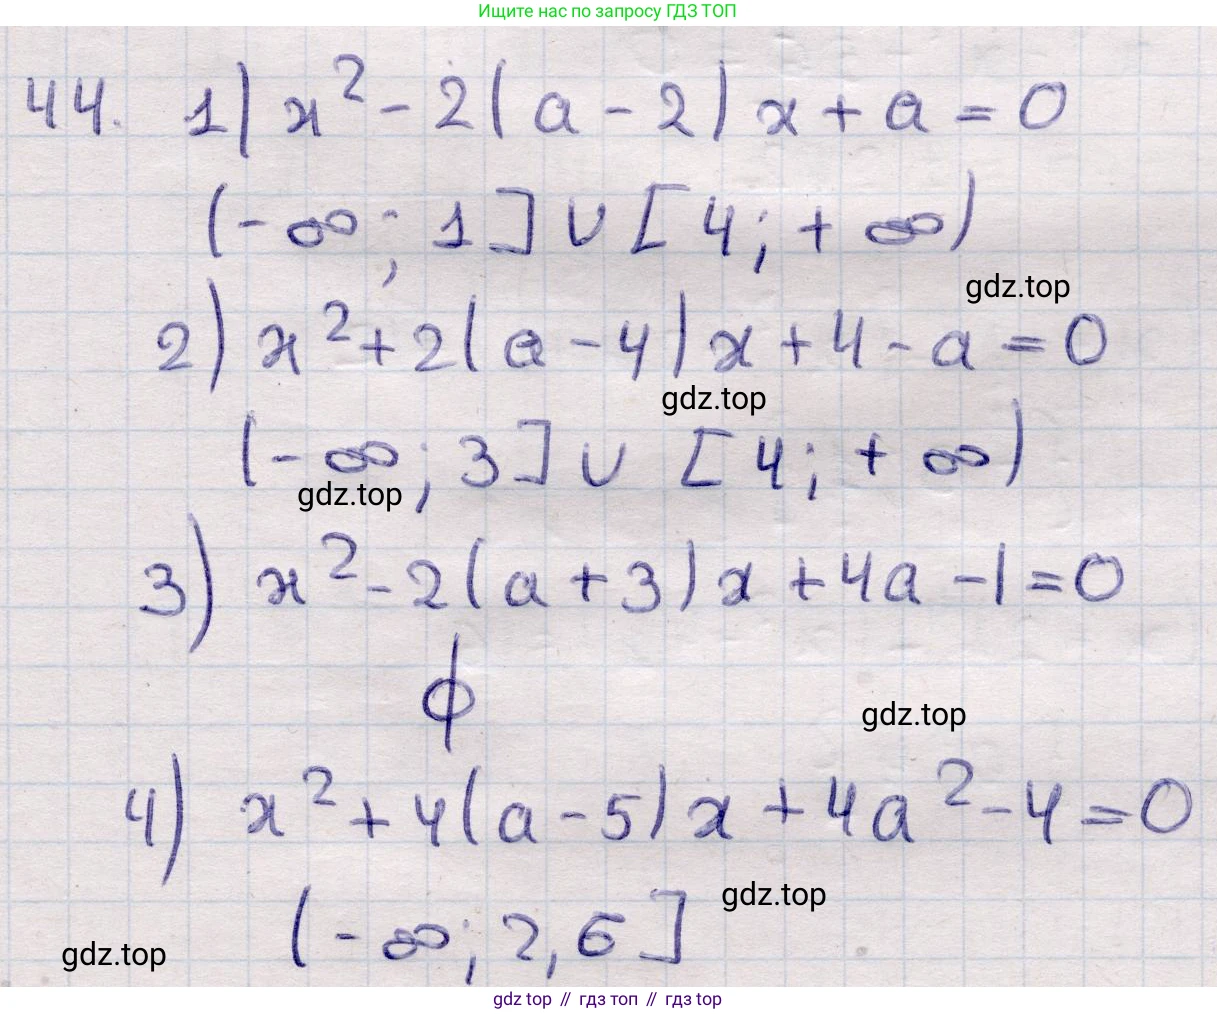 Ищите нас по запросу ГДЗ ТОП
44. 1) x² - 2(a - 2)x + a = 0
(-∞; 1] ∪ [4; +∞)
gdz.top
2) x² + 2(a - 4)x + 4 - a = 0
gdz.top
(-∞; 3] ∪ [4; +∞)
gdz.top
3) x² - 2(a + 3)x + 4a - 1 = 0
ϕ
gdz.top
4) x² + 4(a - 5)x + 4a² - 4 = 0
gdz.top
(-∞; 2,6]
gdz.top
gdz top // гдз топ // гдз top